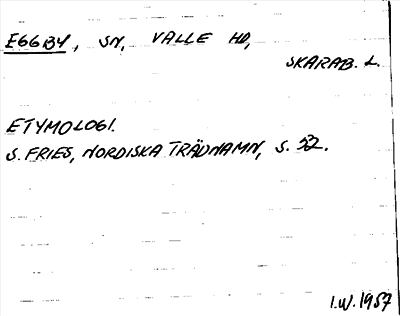 EGGBY, SN, VALLE HD,
SKARAB. L.
ETYMOLOGI.
S. FRIES, NORDISKA TRÄDNAMN, S. 32.
I.W. 1957